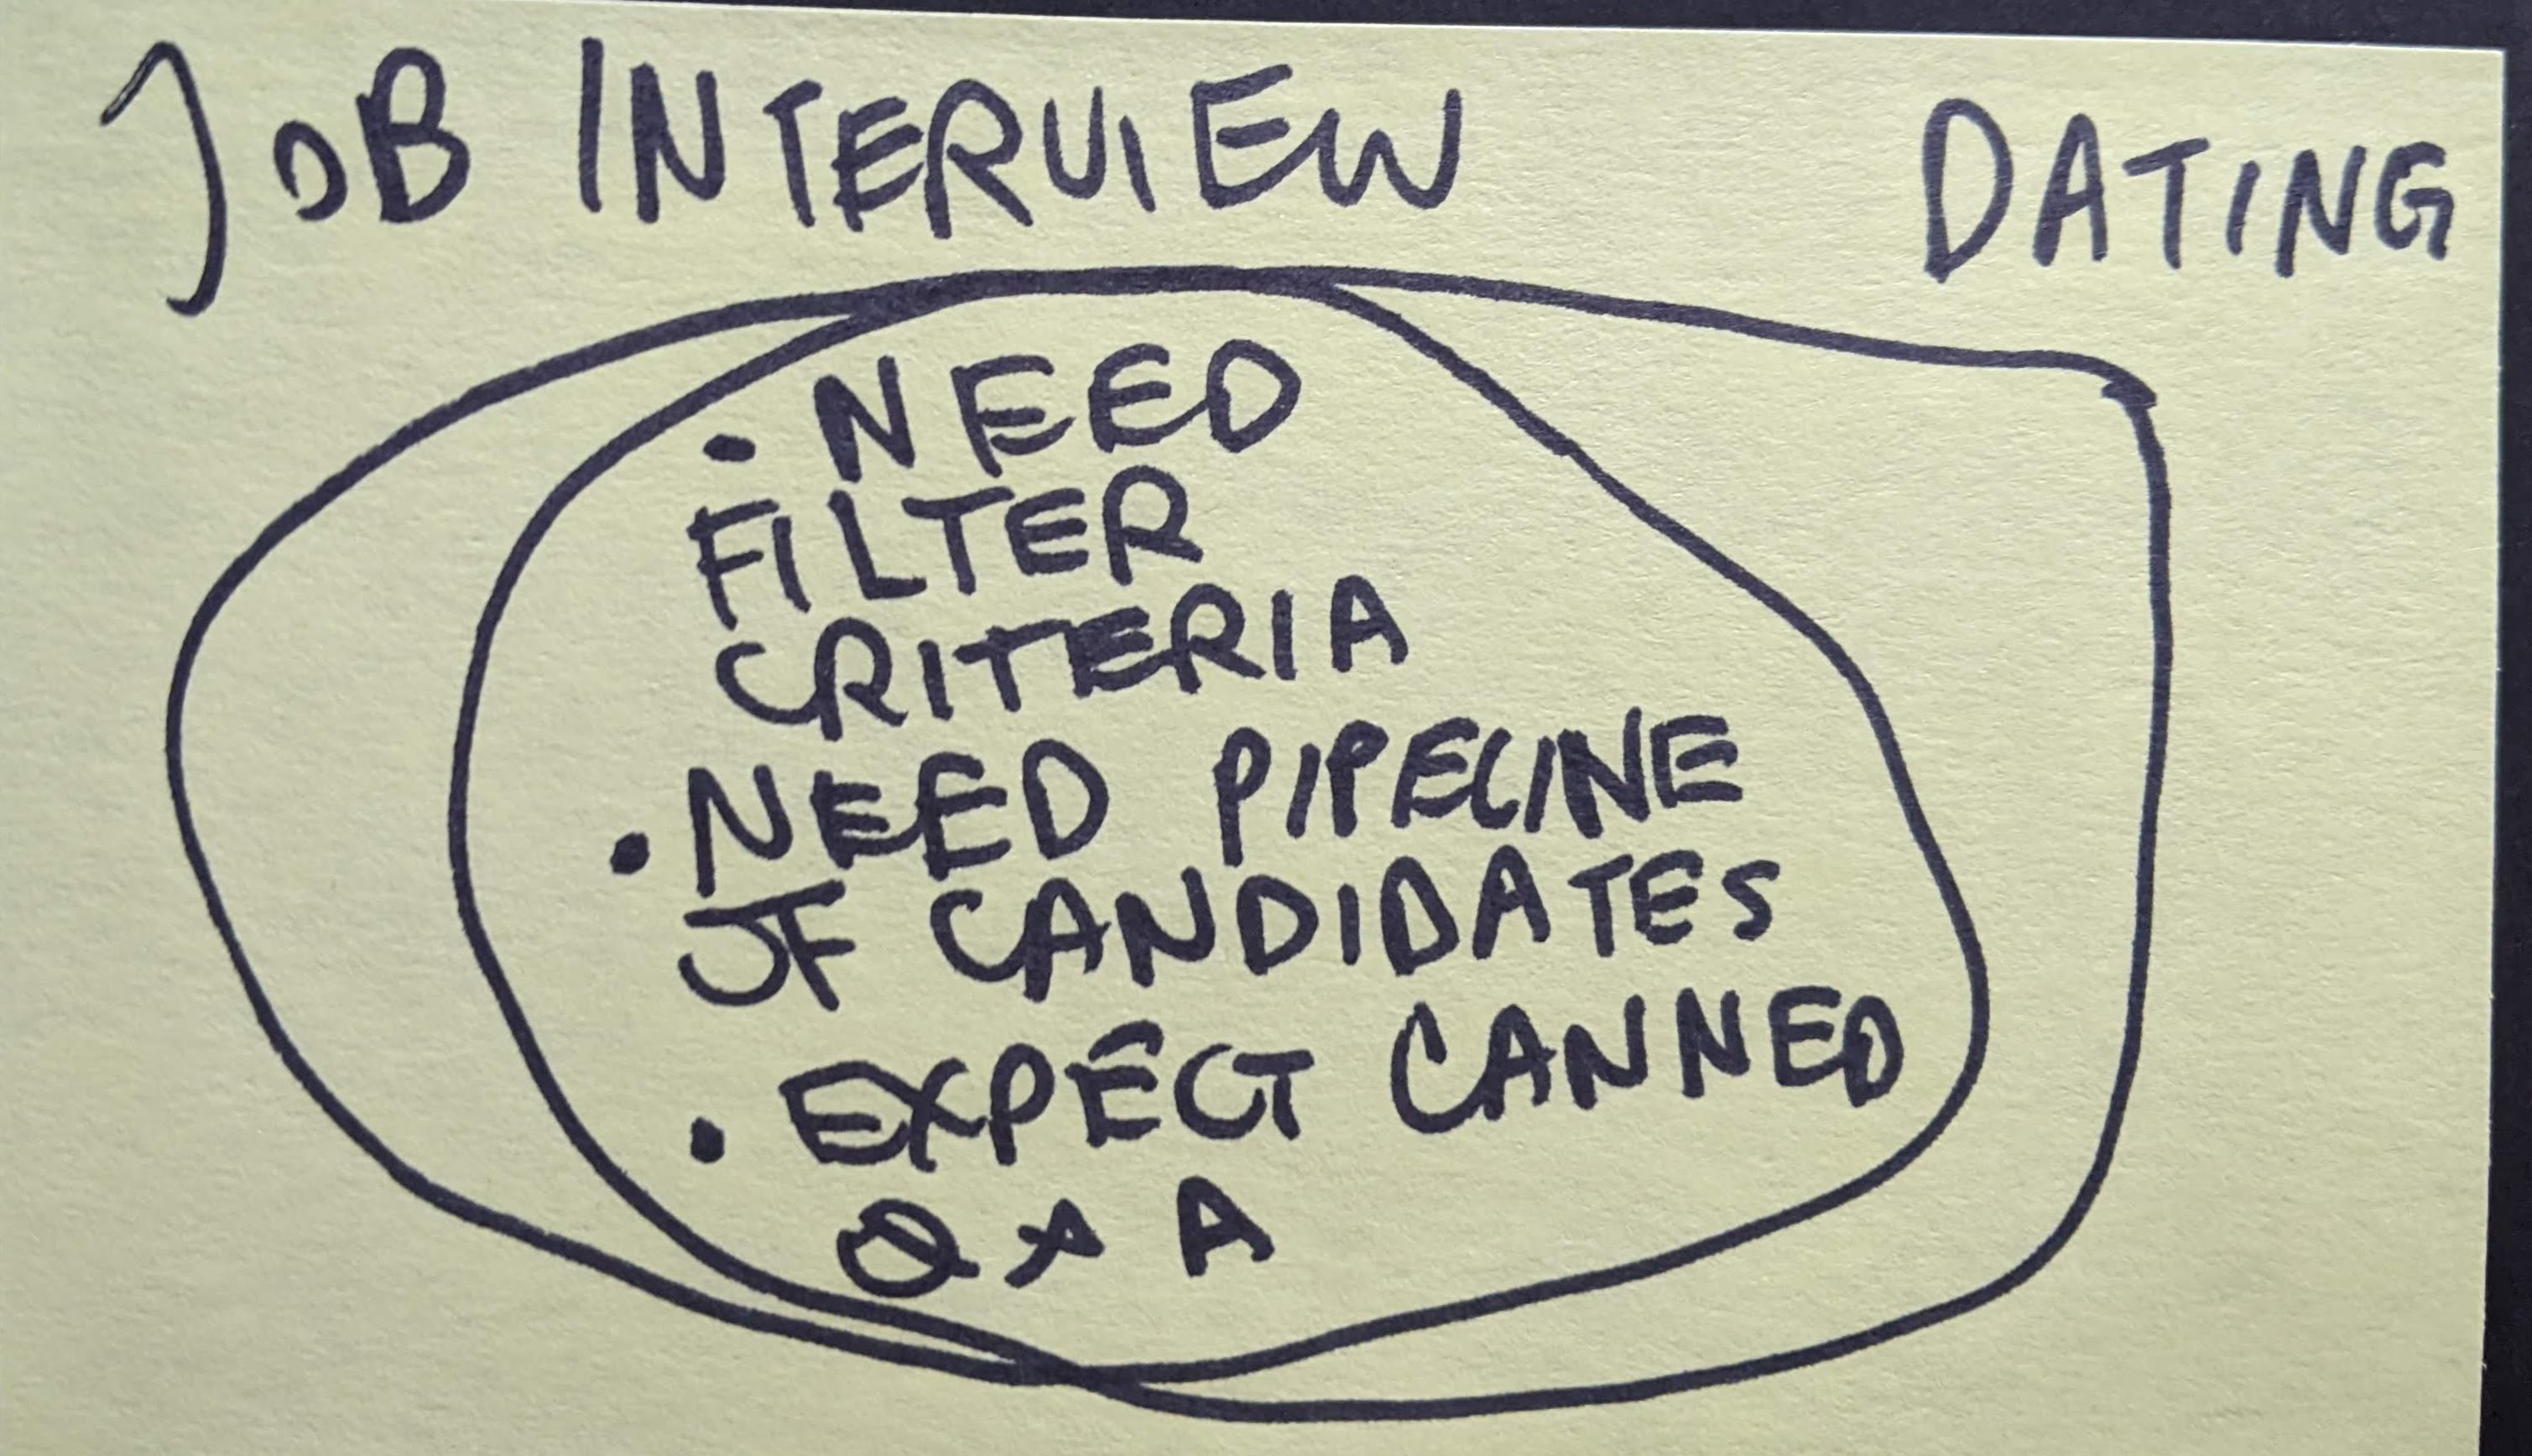 JOB INTERVIEW
DATING
• NEED
FILTER
CRITERIA
• NEED PIPELINE
OF CANDIDATES
• EXPECT CANNED
Q & A